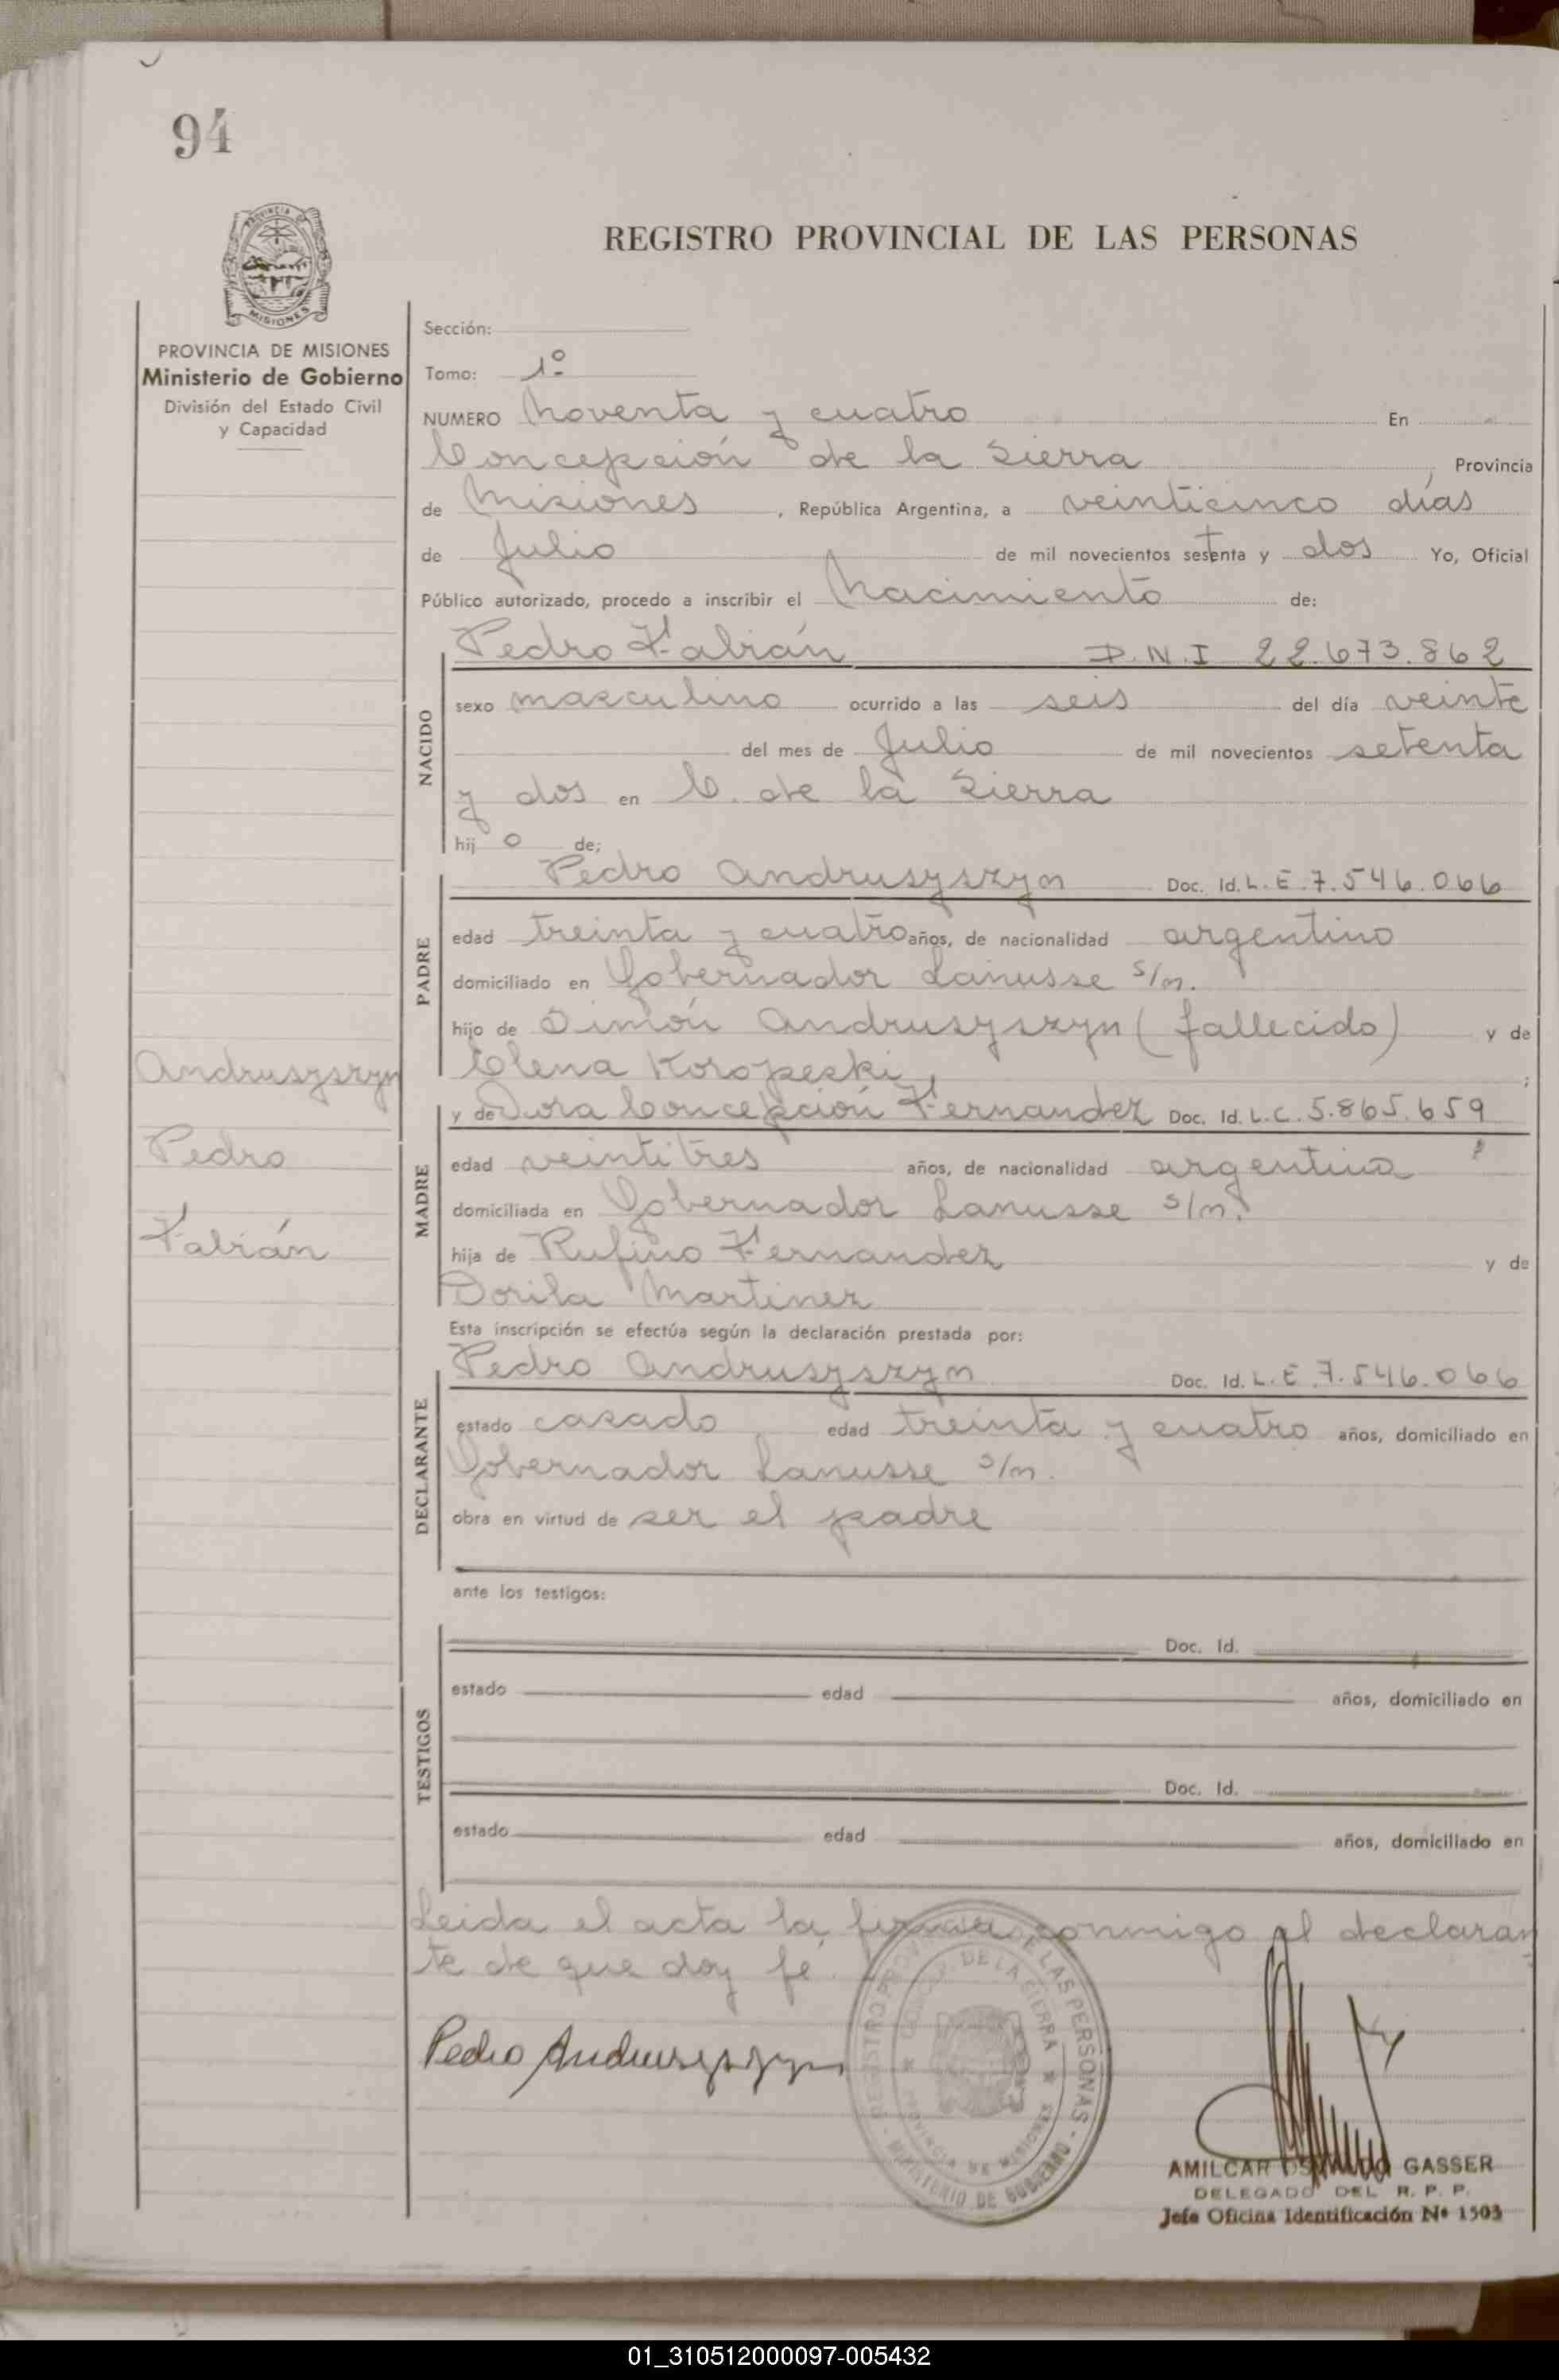 94
REGISTRO PROVINCIAL DE LAS PERSONAS
PROVINCIA DE MISIONES
Ministerio de Gobierno
División del Estado Civil
y Capacidad
Sección:
Tomo: 1º
NUMERO Noventa y cuatro En
Concepción de la Sierra, Provincia
de Misiones, República Argentina, a veinticinco días
de Julio de mil novecientos setenta y dos Yo, Oficial
Público autorizado, procedo a inscribir el Nacimiento de:
Pedro Fabián D.N.I 22.673.862
NACIDO
sexo masculino ocurrido a las seis del día veinte
del mes de Julio de mil novecientos setenta
y dos en C. de la Sierra
hijo de;
Pedro Andrusyszyn Doc. Id. L.E. 7.546.066
PADRE
edad treinta y cuatro años, de nacionalidad argentino
domiciliado en Gobernador Lanusse s/n.
hijo de Simón Andrusyszyn (fallecido) y de
Elena Koropeski;
Andrusyszyn
Pedro
Fabián
y de Dora Concepción Fernandez Doc. Id. L.C. 5.865.659
MADRE
edad veintitres años, de nacionalidad argentina
domiciliada en Gobernador Lanusse s/n.
hija de Rufino Fernandez y de
Dorila Martinez
Esta inscripción se efectúa según la declaración prestada por:
Pedro Andrusyszyn Doc. Id. L.E 7.546.066
DECLARANTE
estado casado edad treinta y cuatro años, domiciliado en
Gobernador Lanusse s/n.
obra en virtud de ser el padre
ante los testigos:
TESTIGOS
Doc. Id.
estado edad años, domiciliado en
Doc. Id.
estado edad años, domiciliado en
Leida el acta la firma conmigo el declaran
te de que doy fé.
Pedro Andrusyszyn
REGISTRO PROVINCIAL DE LAS PERSONAS - MINISTERIO DE GOBIERNO
DE LA SIERRA
PROVINCIA DE MISIONES
AMILCAR GASSER
DELEGADO DEL R. P. P.
Jefe Oficina Identificación Nº 1503
01_310512000097-005432